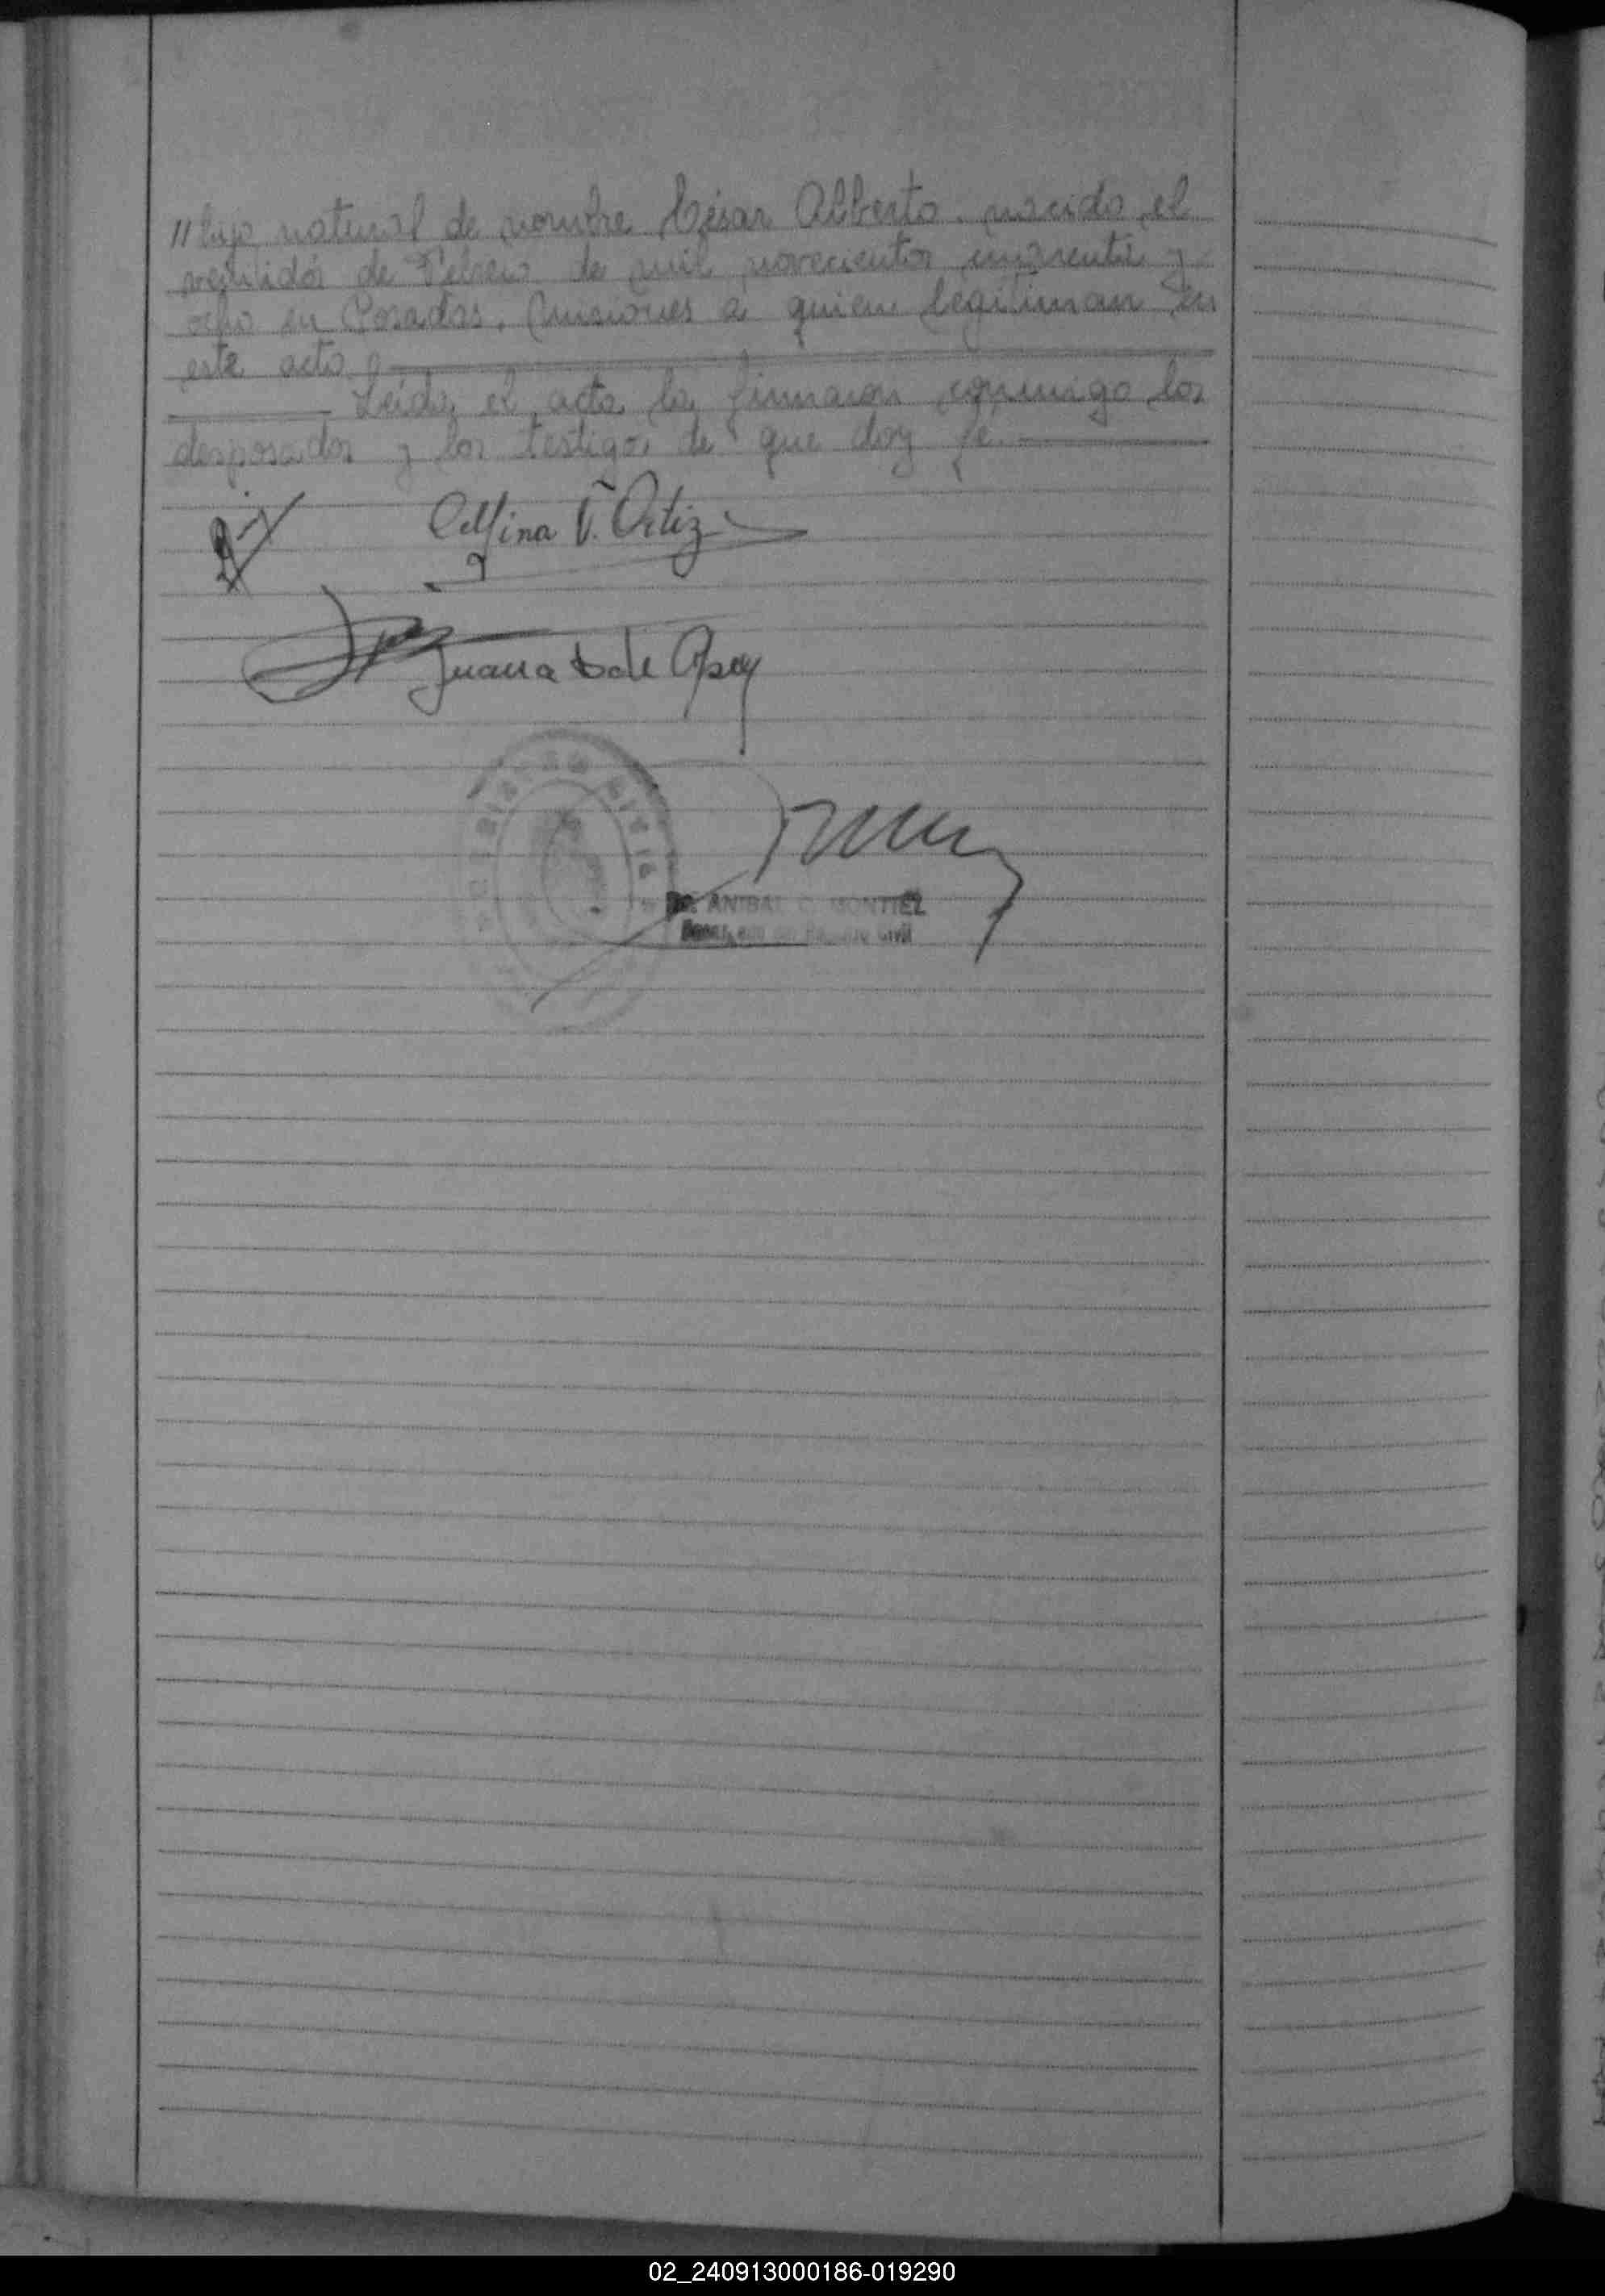 // hijo natural de nombre César Alberto. nacido el
veintidós de Febrero de mil novecientos cuarenta y
ocho en Posadas, Misiones a quien legitiman en
este acto
Leída el acta la firmaron conmigo los
desposados y los testigos de que doy fé.
V. Ortiz
Juana
REGISTRO CIVIL
DR. ANIBAL C. MONTIEL
Registro Civil
02_240913000186-019290